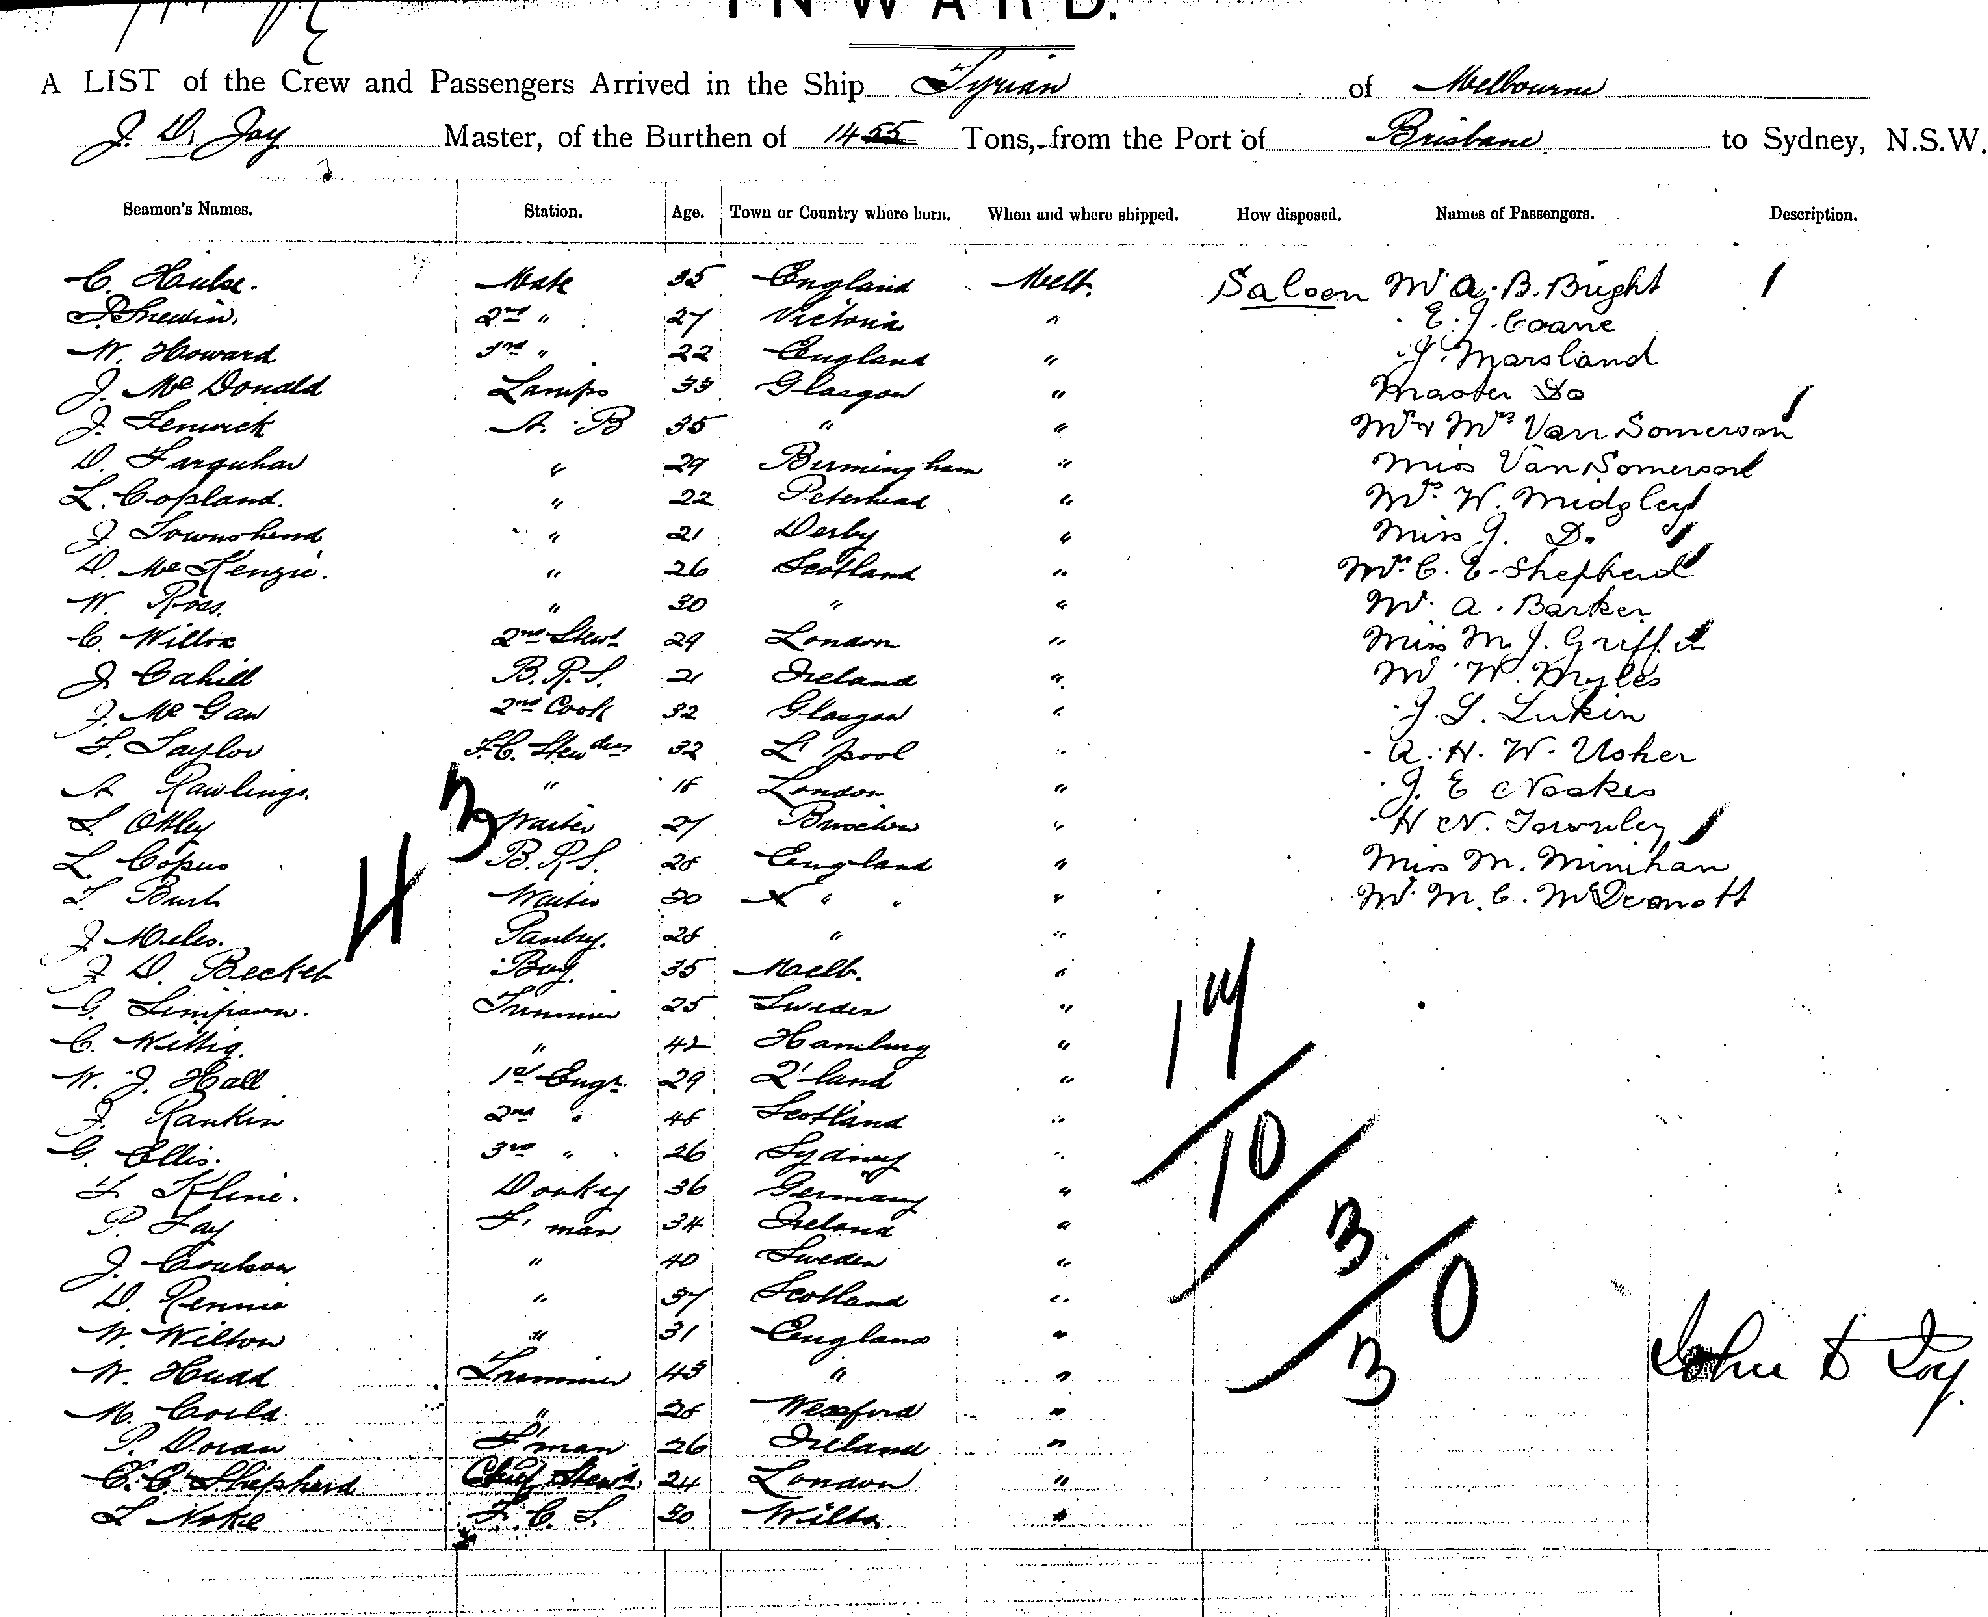 INWARD.
A LIST of the Crew and Passengers Arrived in the Ship Tyrian of Melbourne
J. D. Joy Master, of the Burthen of 1455 Tons, from the Port of Brisbane to Sydney, N.S.W.
Seamen's Names. Station. Age. Town or Country where born. When and where shipped. How disposed. Names of Passengers. Description.
C. Hulse. Mate 35 England Melb. Saloon Mr A. B. Bright
2nd " 27 Victoria " E. J. Coane
W. Howard 3rd " 22 England " J. Marsland
J. McDonald Lamps 33 Glasgow " Master Do
J. Fenwick A. B 35 " " Mr & Mrs Van Someron
D. Farquhar " 29 Birmingham " Miss Van Someron
L. Copland. " 22 Peterhead " Mrs W. Midgley
J Townshend " 21 Derby " Miss J. D.
D. McKenzie. " 26 Scotland " Mr. C. E. Shepherd
W. Ross. " 30 " " Mr. A. Barker
C. Willox 2nd Stewd 29 London " Miss M. J. Griffith
J Cahill B.R.S. 21 Ireland " Mr W. Myles
J. McGaw 2nd Cook 32 Glasgow " J. S. Lukin
F. Taylor F.C. Stewdess 32 L'pool " A. H. W. Usher
A Rawlings. " 18 London " J. E Noakes
L. Otley Waiter 27 " H N. Townley
L. Copus B.R.S. 28 England " Miss M. Minihan
T. Bush Waiter 30 " " " Mr. M. C. McDermott
J. Miles. Pantry. 28 " "
J. D. Becket Boy. 35 Melb. "
G. Simpson. Trimmer 25 Sweden "
C. Wittig. " 42 Hamburg "
W. J. Hall 1st Engr. 29 Q'land "
J. Rankin 2nd " 48 Scotland "
G. Ellis. 3rd " 26 Sydney "
F. Kline. Donkey 36 Germany "
P. Fay F'man 34 Ireland "
J. Coulson " 40 Sweden "
D. Rennie " 37 Scotland "
W. Wilton " 31 England "
W. Hudd Trimmer 43 " "
M. " 28 Wexford "
P. Doran F'man 26 Ireland "
C. C. Shepherd Chief Stewd. 24 London "
T Noke F. C. S. 30 Wilts. "
43
14
10
3
0
3
John D Joy.